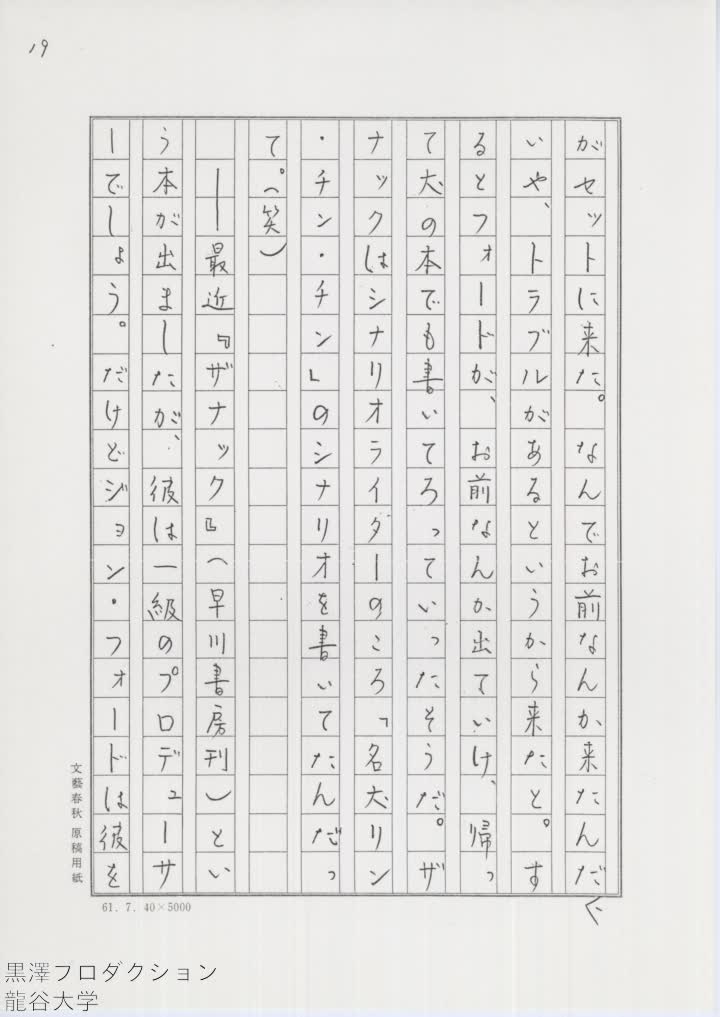 19
がセットに来た。なんでお前なんか来たんだ
いや、トラブルがあるというから来たと。す
るとフォードが、お前なんか出ていけ、帰っ
て犬の本でも書いてろっていったそうだ。ザ
ナックはシナリオライターのころ「名犬リン
・チン・チン」のシナリオを書いてたんだっ
て。(笑)
――最近『ザナック』(早川書房刊)とい
う本が出ましたが、彼は一級のプロデューサ
ーでしょう。だけどジョン・フォードは彼を
文藝春秋 原稿用紙
61. 7. 40×5000
黒澤プロダクション
龍谷大学